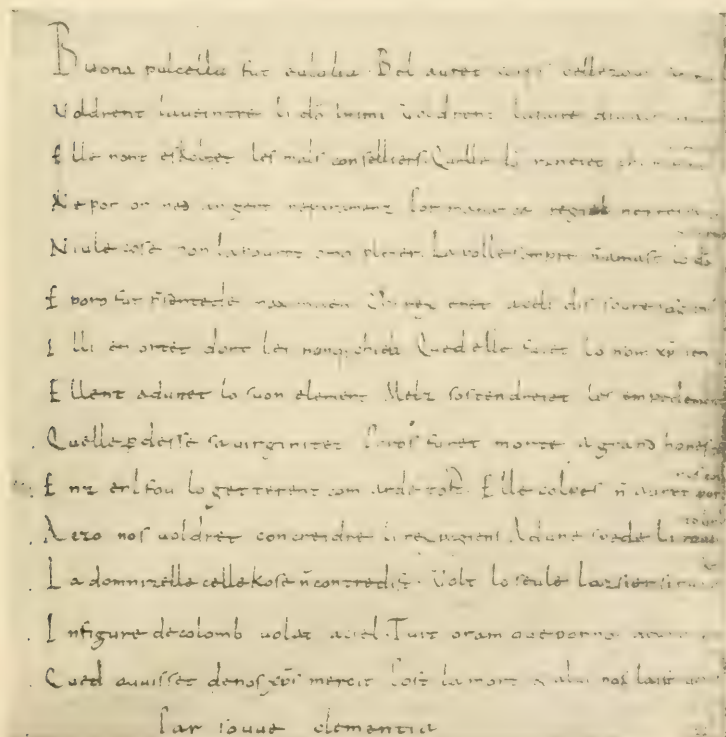 Buona pulcella fut eulalia. Bel auret corps bellezour
Voldrent laueintre li dō inimi. Voldrent la faire diaule
Elle nont eskoltet les mals conselliers. Quelle dō raneiet
Ne por or ned argent ne paramenz. Por manatce regiel ne
Niule cose non la pouret omne pleier. La polle sempre ñ amast lo dō
E poro fut p̄sentede maximiien. Chi rex eret a cels dis soure
I lli en ortet dont lei nonq; chielt. Qued elle fuiet lo nom xp̄iien
E llent adunet lo suon element. Melz sostendreiet les empedementz
Quelle ꝑdesse sa uirginitet. Poros furet morte a grand honestet
Enz enl fou lo getterent com arde tost. Elle colpes ñ auret por
Aezo nos uoldret concreidre li rex pagiens. Ad une spede li
La domnizelle celle kose ñ contredist. Volt lo seule lazsier si
In figure de colomb uolat a ciel. Tuit oram que por nos
Qued auuisset de nos xp̄s mercit. Post la mort & a lui nos laist
Par souue clementia